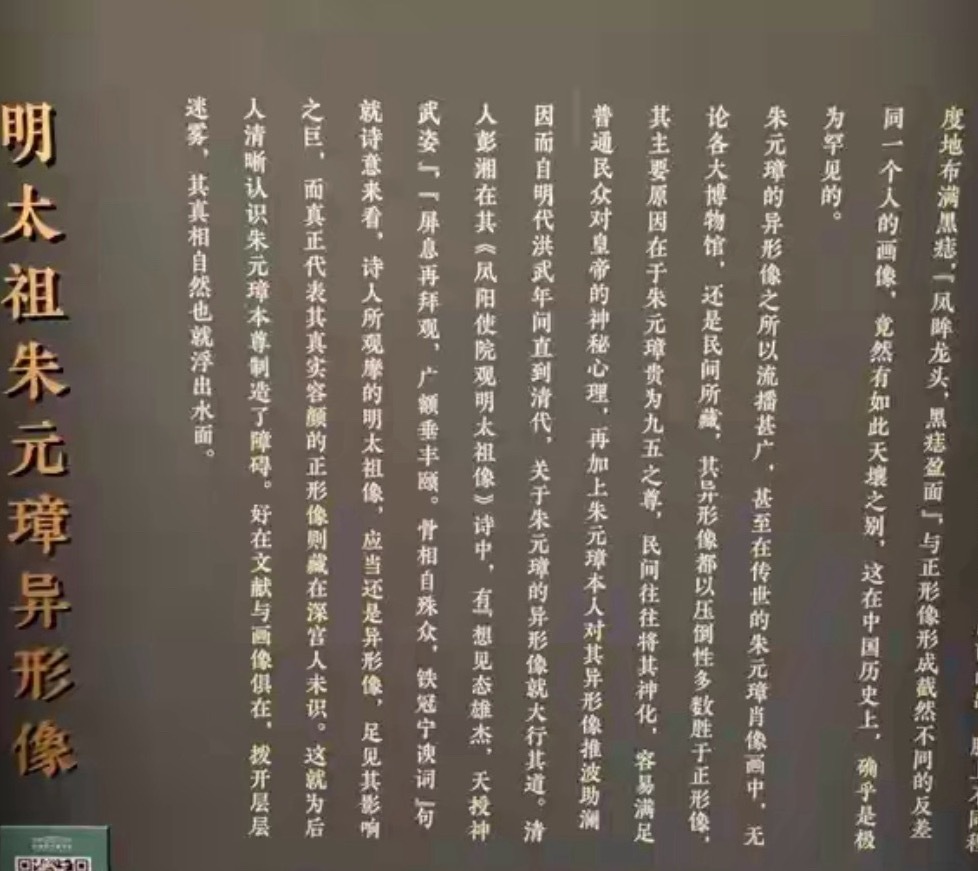 度地布满黑痣，『凤眸龙头，黑痣盈面』，与正形像形成截然不同的反差
同一个人的画像，竟然有如此天壤之别，这在中国历史上，确乎是极
为罕见的。
朱元璋的异形像之所以流播甚广，甚至在传世的朱元璋肖像画中，无
论各大博物馆，还是民间所藏，其异形像都以压倒性多数胜于正形像，
其主要原因在于朱元璋贵为九五之尊，民间往往将其神化，容易满足
普通民众对皇帝的神秘心理，再加上朱元璋本人对其异形像推波助澜
因而自明代洪武年间直到清代，关于朱元璋的异形像就大行其道。清
人彭湘在其《凤阳使院观明太祖像》诗中，有『想见态雄杰，天授神
武姿』，『屏息再拜观，广额垂丰颐。骨相自殊众，铁冠宁谀词』句
就诗意来看，诗人所观摩的明太祖像，应当还是异形像，足见其影响
之巨，而真正代表其真实容颜的正形像则藏在深宫人未识。这就为后
人清晰认识朱元璋本尊制造了障碍。好在文献与画像俱在，拨开层层
迷雾，其真相自然也就浮出水面。
明太祖朱元璋异形像